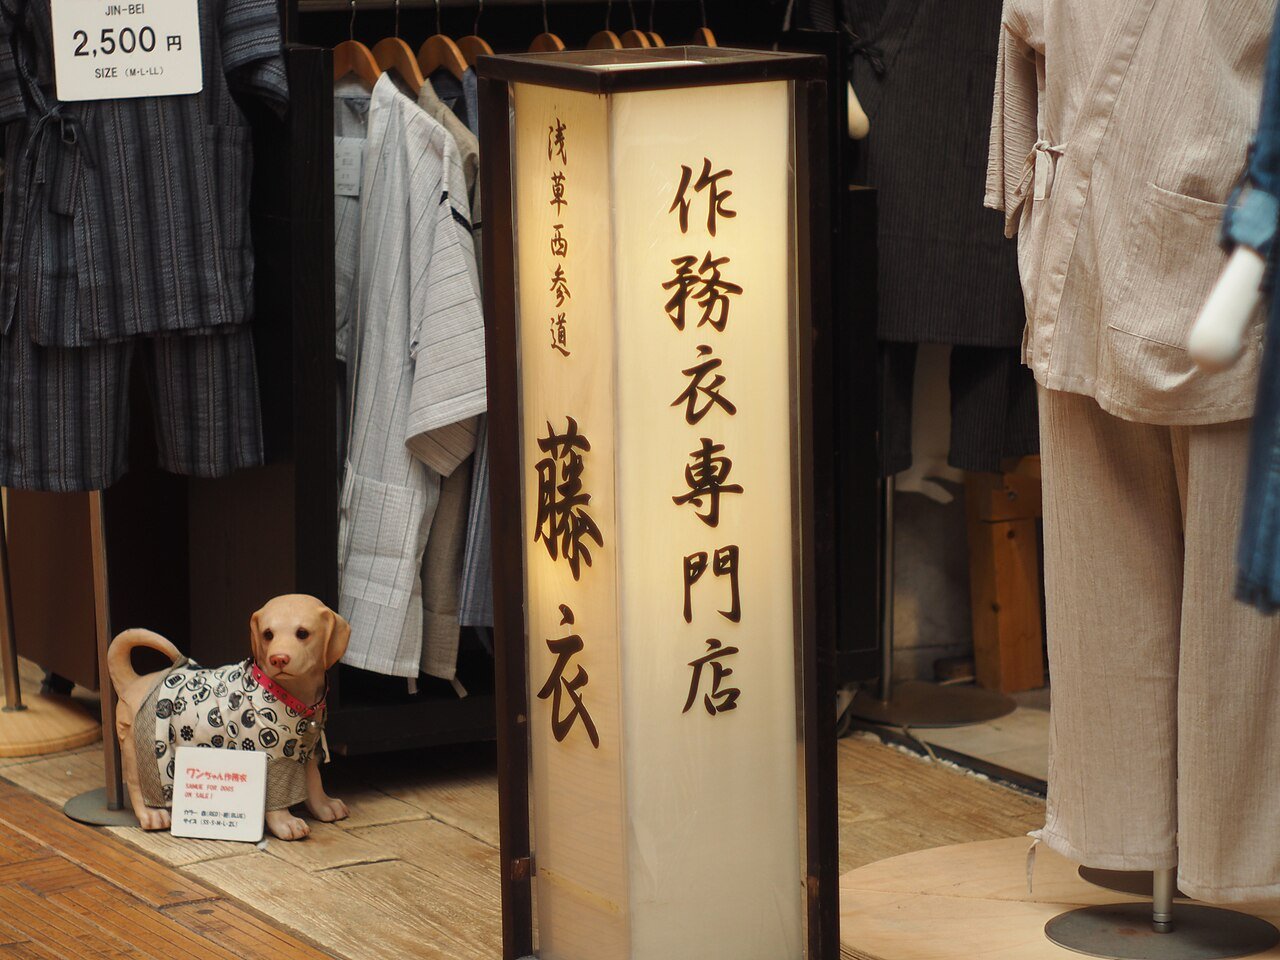 JIN-BEI
2,500 円
SIZE (M・L・LL)
作務衣専門店
浅草西参道
藤衣
ワンちゃん作務衣
SAMUE FOR DOGS
ON SALE!
カラー 赤(RED)・紺(BLUE)
サイズ (SS・S・M・L・2L)